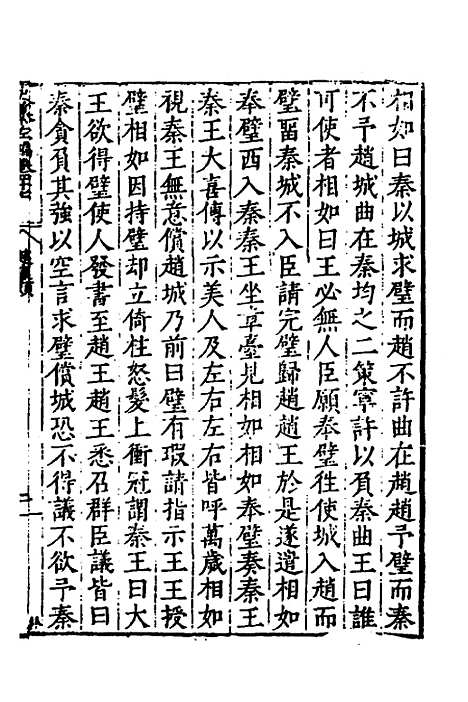 相如曰秦以城求璧而趙不許曲在趙趙予璧而秦
不予趙城曲在秦均之二策寧許以負秦曲王曰誰
可使者相如曰王必無人臣願奉璧徃使城入趙而
璧留秦城不入臣請完璧歸趙趙王於是遂遣相如
奉璧西入秦秦王坐章臺見相如相如奉璧奏秦王
秦王大喜傳以示美人及左右左右皆呼萬歲相如
視秦王無意償趙城乃前曰璧有瑕請指示王王授
璧相如因持璧却立倚柱怒髮上衝冠謂秦王曰大
王欲得璧使人發書至趙王趙王悉召群臣議皆曰
秦貪負其強以空言求璧償城恐不得議不欲予秦